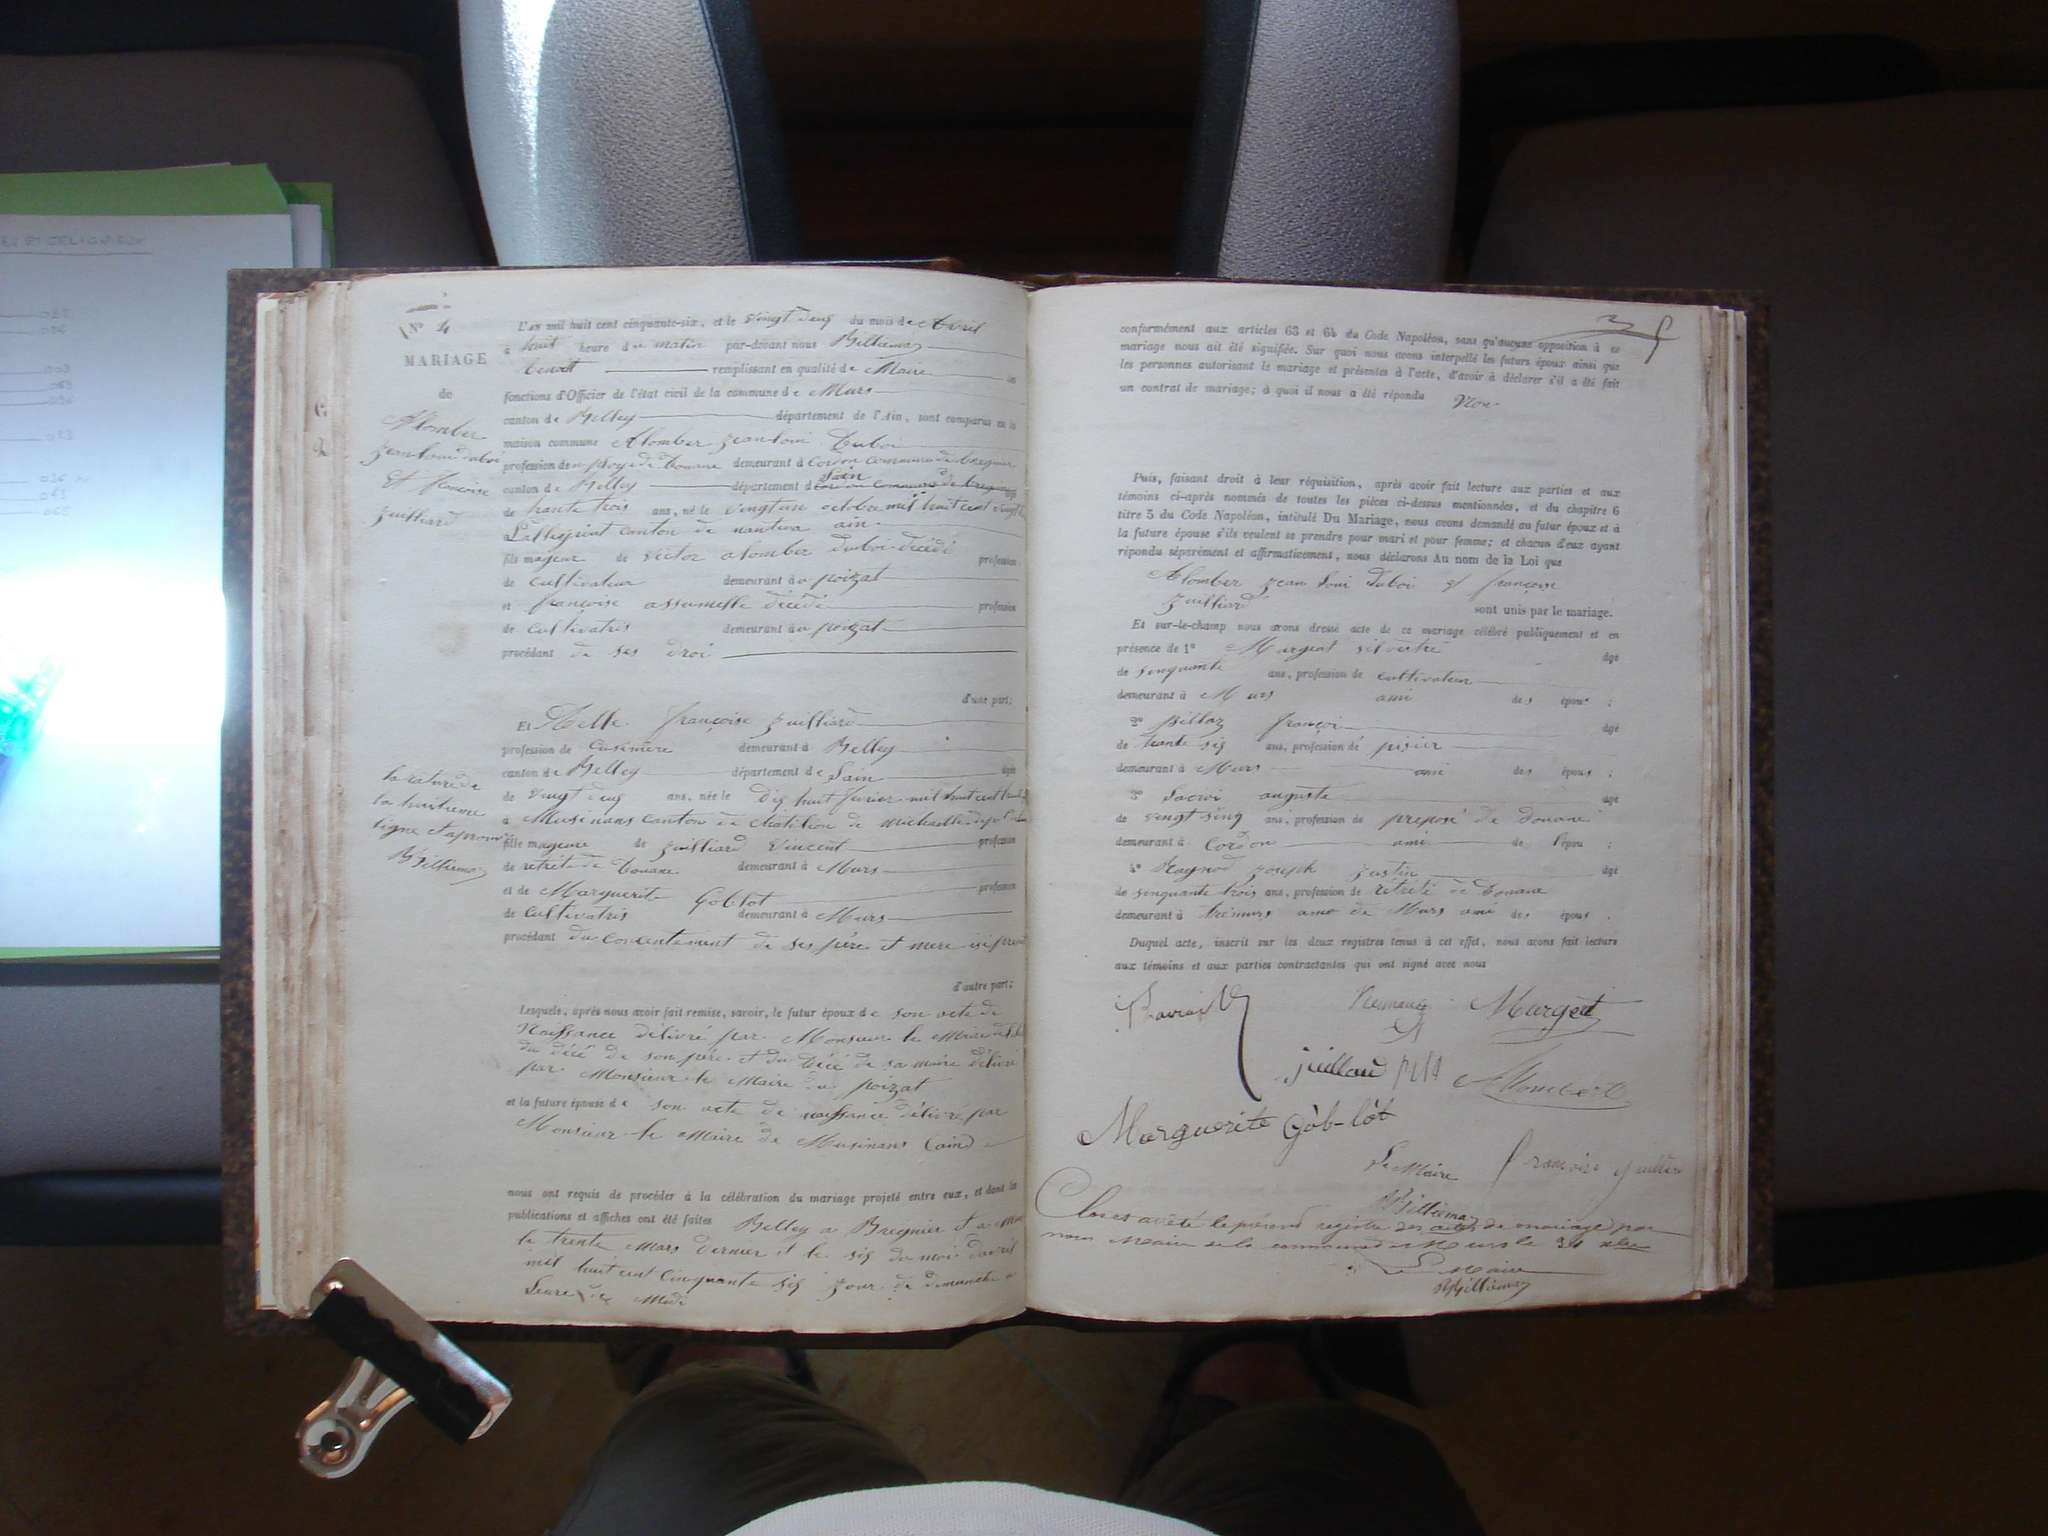 N° 4
MARIAGE
de
Alomber
jean loui duboi
et françoise
juilliard
L'an mil huit cent cinquante-six, et le vingt deuq du mois de Avril
à huit heure du matin par-devant nous Billiemaz
benoit remplissant en qualité de Maire les
fonctions d'Officier de l'état civil de la commune de Murs
canton de Belley département de l'Ain, sont comparus en la
maison commune Alomber jean loui Duboi
profession de demeurant à Cordon commune de bregnier
canton de Belley département de Lain âgé
de trante trois ans, né le vingt un octobre mil huit cent vingt
canton de nantua ain
fils mageur de victor alomber duboi décédé profession
de cultivateur demeurant au poizat
et françoise assumelle décédé profession
de cultivatris demeurant au poizat
procédant de ses droi
d'une part;
Et Melle françoise juilliard
profession de Cusiniere demeurant à Belley
canton de Belley département de Lain âgée
de vingt deuq ans, née le diq huit fevrier mil huit cent
à Musinans canton de chatilion de michaille
fille mageure de juilliard vincent profession
de retrété de Douane demeurant à Murs
et de Marguerite Goblot profession
de cultivatris demeurant à Murs
procédant du concentement de ses père et mere isi
d'autre part;
la rature de
la huitieme
ligne et aprouvé
Billiemaz
Lesquels, après nous avoir fait remise, savoir, le futur époux de son acte de
Naissance délivré par Monsieur le Maire
du décé de son père et du Décé de sa maire délivré
par Monsieur le Maire du poizat
et la future épouse de son acte de naissance délivré par
Monsieur le Maire de Musinans (ain)
nous ont requis de procéder à la célébration du mariage projeté entre eux, et dont les
publications et affiches ont été faites Belley a Bregnier et a
le trente Mars dernier et le siq du moi davril
mil huit cent cinquante siq jour de dimanche a
Leure de Midi
conformément aux articles 63 et 64 du Code Napoléon, sans qu'aucune opposition à ce
mariage nous ait été signifiée. Sur quoi nous avons interpellé les futurs époux ainsi que
les personnes autorisant le mariage et présentes à l'acte, d'avoir à déclarer s'il a été fait
un contrat de mariage; à quoi il nous a été répondu Non
Puis, faisant droit à leur réquisition, après avoir fait lecture aux parties et aux
témoins ci-après nommés de toutes les pièces ci-dessus mentionnées, et du chapitre 6
titre 5 du Code Napoléon, intitulé Du Mariage, nous avons demandé au futur époux et à
la future épouse s'ils veulent se prendre pour mari et pour femme; et chacun d'eux ayant
répondu séparément et affirmativement, nous déclarons Au nom de la Loi que
Alomber jean loui duboi et françoise
juilliard sont unis par le mariage.
Et sur-le-champ nous avons dressé acte de ce mariage célébré publiquement et en
présence de 1° Margeat silvestre âgé
de sinquante ans, profession de cultivateur
demeurant à Murs ami des épous ;
2° pillaz françoi âgé
de trante siq ans, profession de pisier
demeurant à Murs ami des épous ;
3° Lacroi auguste âgé
de vingt sinq ans, profession de preposé de douane
demeurant à Cordon ami de l'épou ;
4° Ragnod joseph justin âgé
de sinquante trois ans, profession de rétrété de Douane
demeurant à de Murs ami des épous .
Duquel acte, inscrit sur les deux registres tenus à cet effet, nous avons fait lecture
aux témoins et aux parties contractantes qui ont signé avec nous
Margeat
Alombert
Marguerite Gòb-lòt
Le Maire
Billiemaz
Clos et arrêté le présent registre des actes de mariage par
nous Maire de la commune de Murs le 31 Xbre
Le Maire
Billiemaz